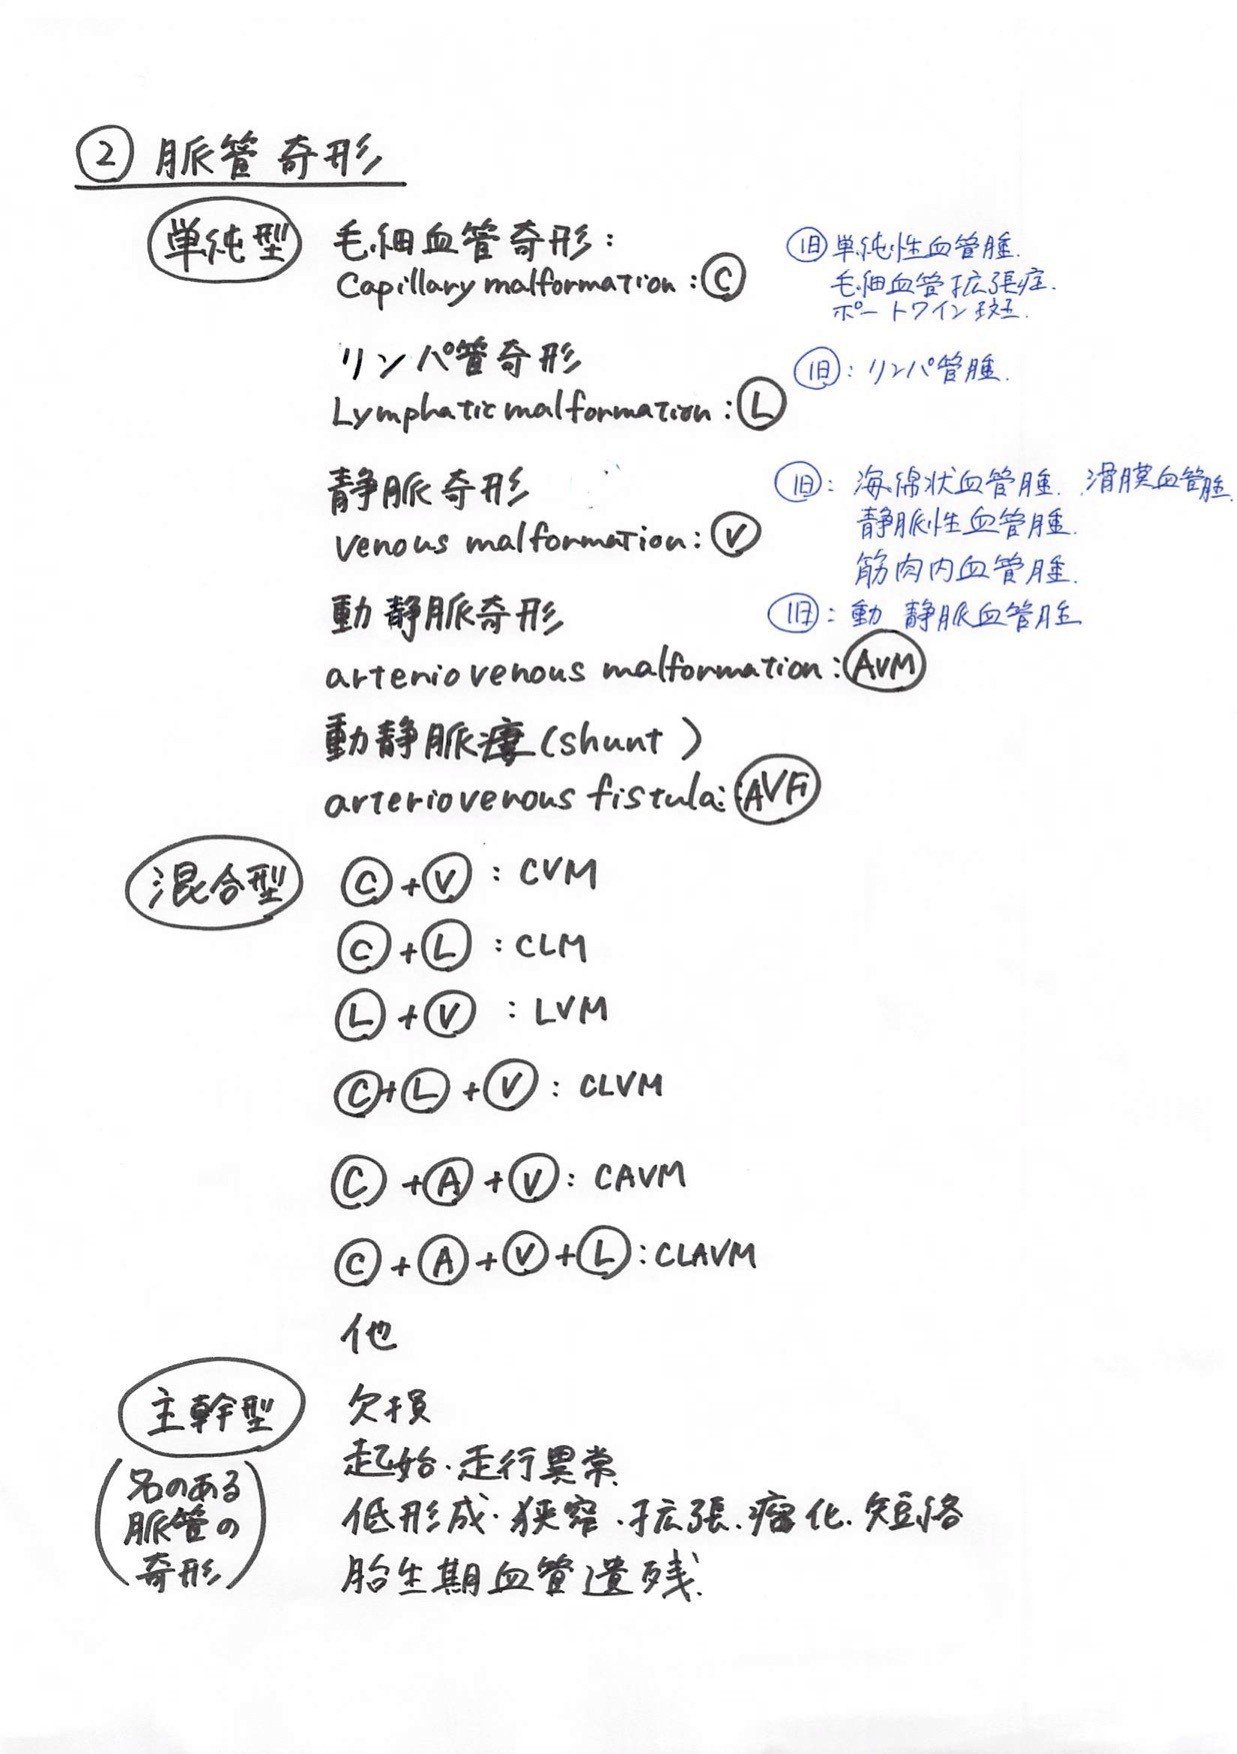 ② 脈管奇形
単純型 毛細血管奇形：
Capillary malformation：Ⓒ
旧 単純性血管腫.
毛細血管拡張症.
ポートワイン斑.
リンパ管奇形
Lymphatic malformation：Ⓛ
旧：リンパ管腫.
静脈奇形
venous malformation：Ⓥ
旧：海綿状血管腫. 滑膜血管腫.
静脈性血管腫.
筋肉内血管腫.
動静脈奇形
旧：動静脈血管腫
arteriovenous malformation：AVM
動静脈瘻(shunt)
arteriovenous fistula：AVFi
混合型 Ⓒ+Ⓥ：CVM
Ⓒ+Ⓛ：CLM
Ⓛ+Ⓥ：LVM
Ⓒ+Ⓛ+Ⓥ：CLVM
Ⓒ+Ⓐ+Ⓥ：CAVM
Ⓒ+Ⓐ+Ⓥ+Ⓛ：CLAVM
他
主幹型 欠損
(名のある
脈管の
奇形)
起始・走行異常
低形成・狭窄・拡張・瘤化・短絡
胎生期血管遺残.